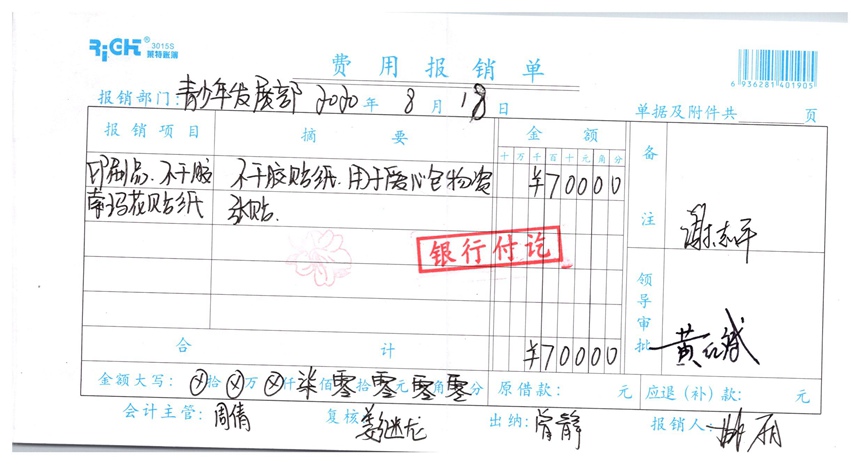 RiCHT® 3015S
莱特账簿
费用报销单
6 936281 401905
报销部门:青少年发展部 2020年8月18日 单据及附件共 页
报销项目 摘要 金额 备注
十万千百十元角分
印刷品.不干胶 不干胶贴纸.用于爱心包物资 ¥70000
张贴.
谢志平
银行付讫
领导审批
合计 ¥70000
金额大写:ⓧ拾ⓧ万ⓧ仟柒佰零拾零元零角零分 原借款: 元 应退(补)款: 元
会计主管:周倩 复核 姜继龙 出纳:曾静 报销人: